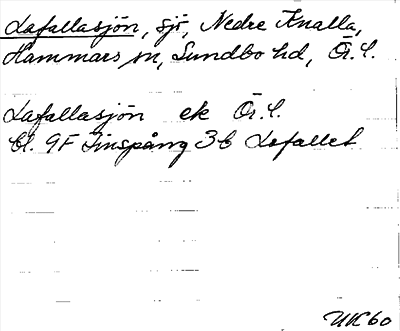 Lafallasjön, sjö, Nedre Knalla,
Hammars sn, Sundbo hd, Ör. l.
Lafallasjön ek Ör. l.
bl. 9F Finspång 3b Lafallet
UK60